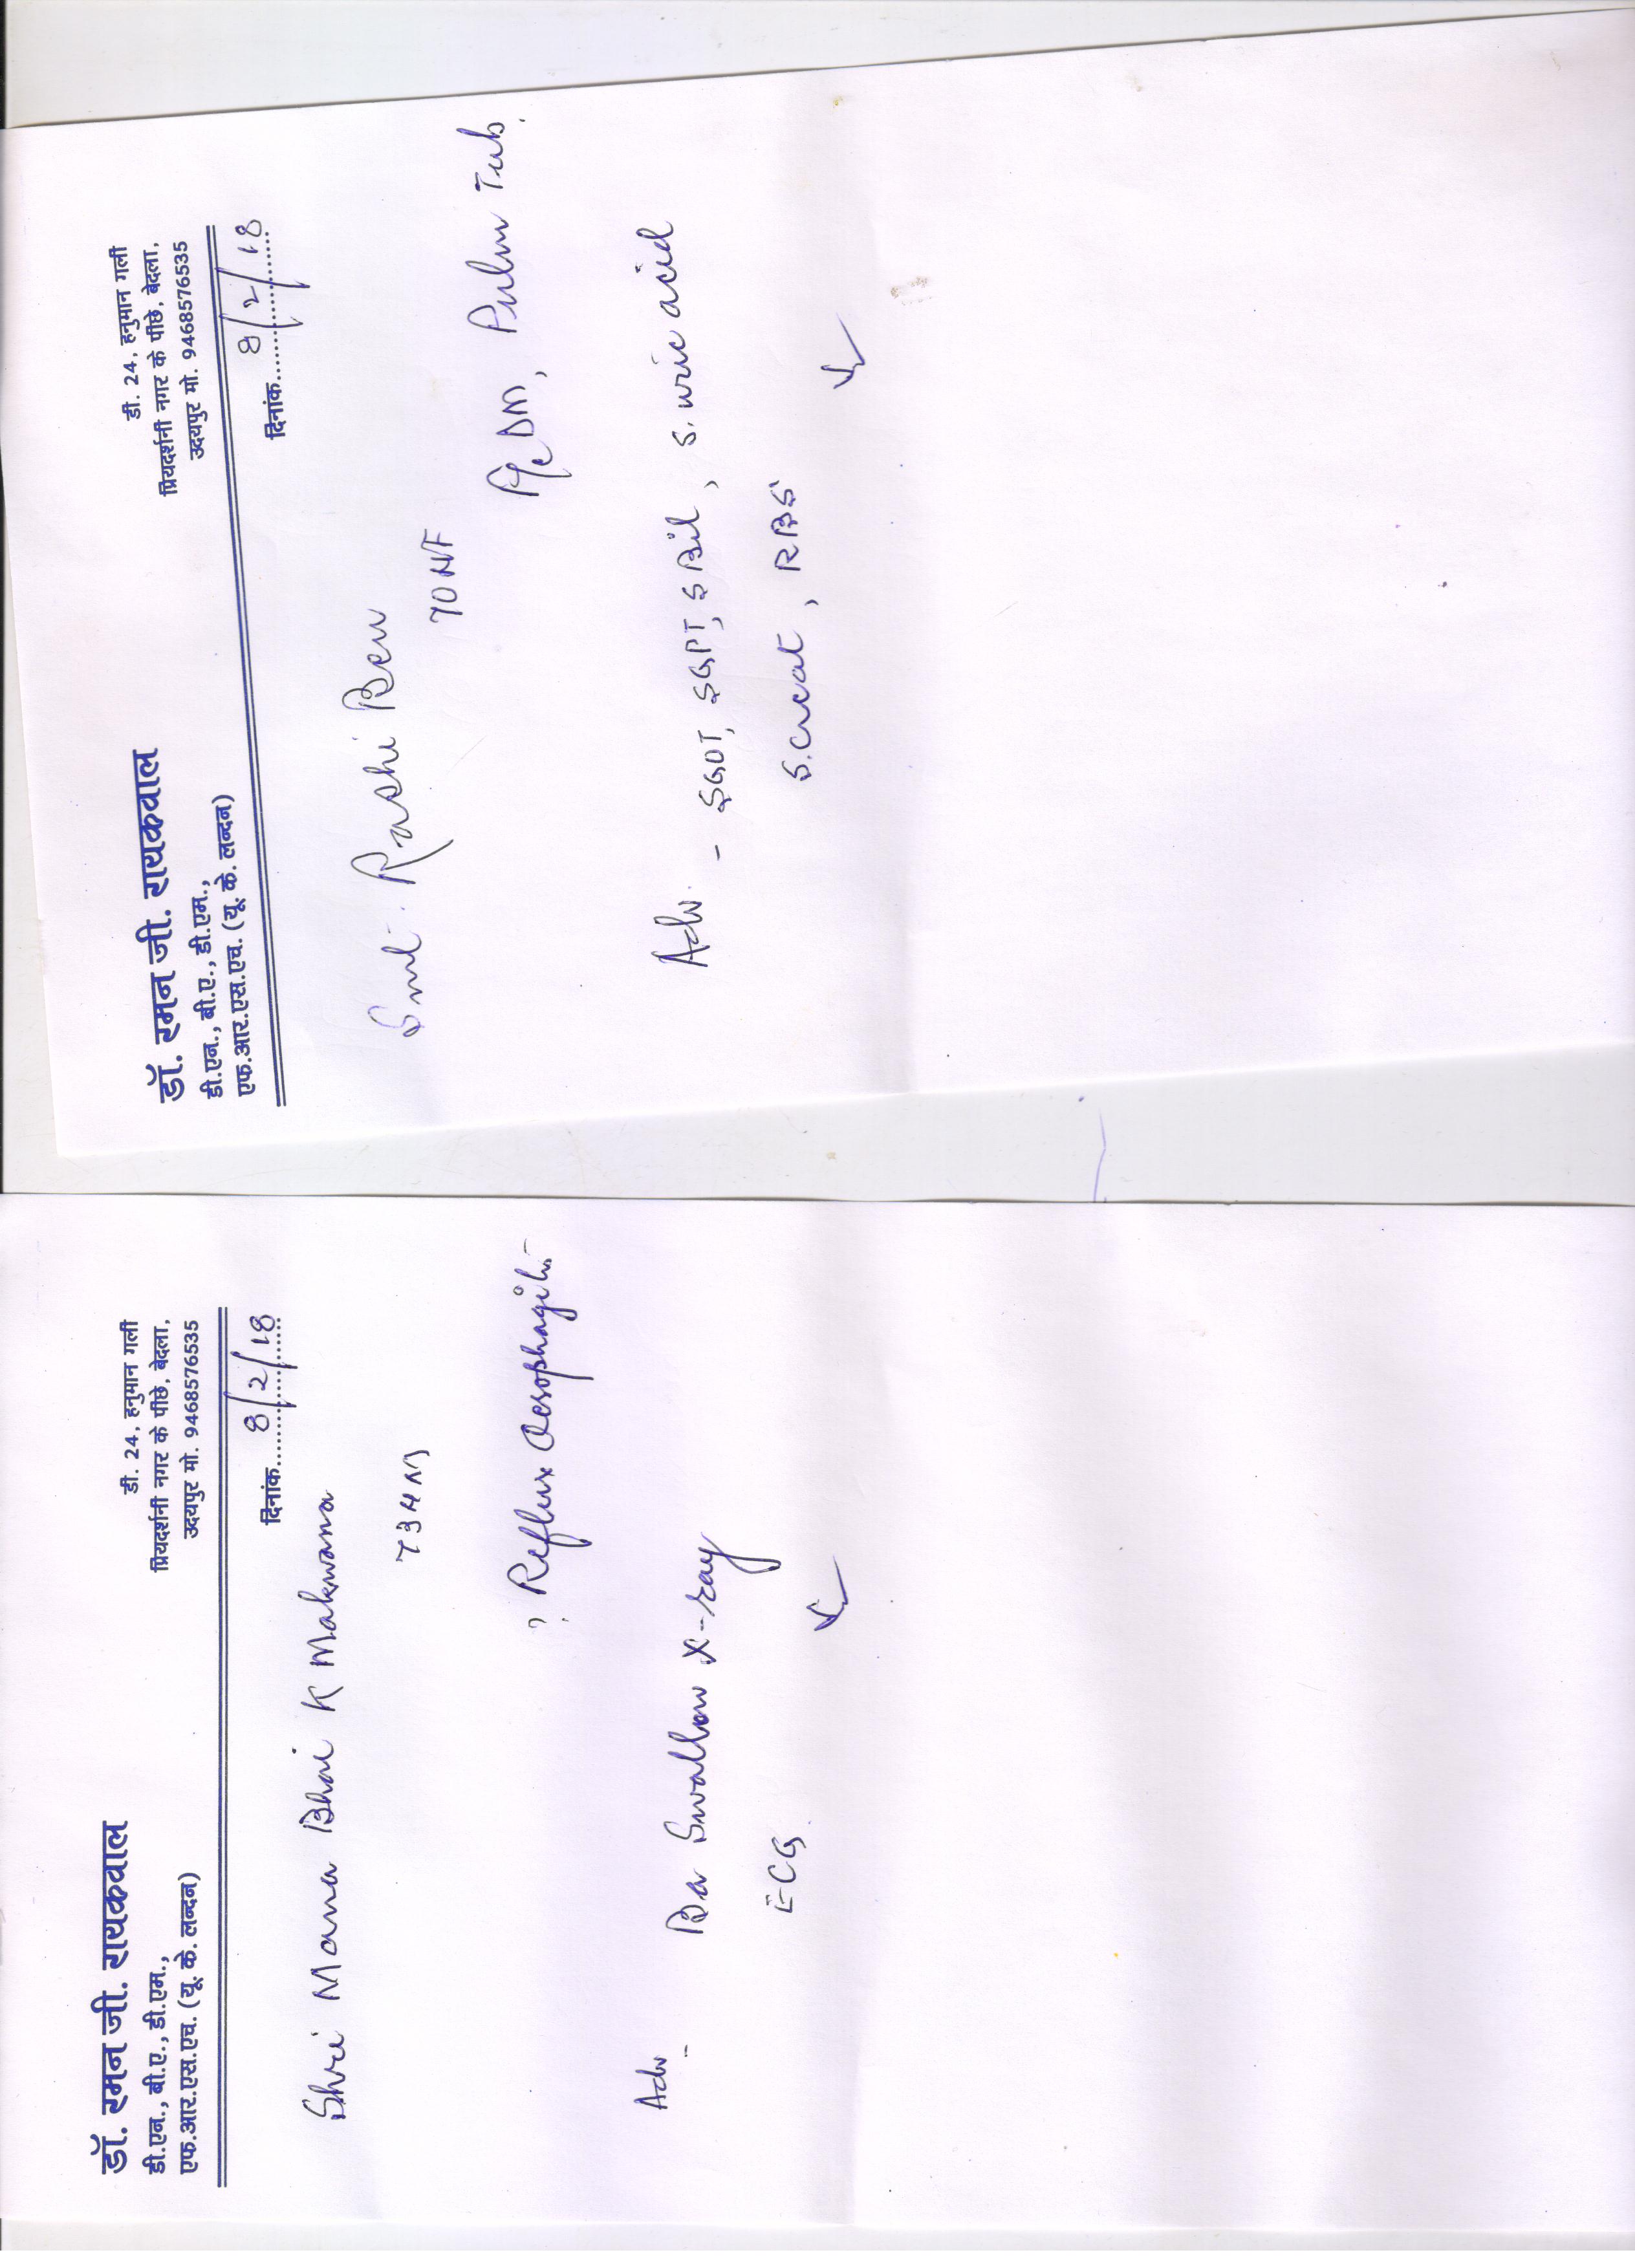 डॉ. रमन जी. रायकवाल
डी.एन., बी.ए., डी.एम.,
एफ.आर.एस.एच. (यू. के. लन्दन)
डी. 24, हनुमान गली
प्रियदर्शनी नगर के पीछे, बेदला,
उदयपुर मो. 9468576535
दिनांक 8/2/18
Shri Mana Bhai K Makwana
73 M
? Reflux Oesophagitis
Adv -
Ba Swallow X-ray
ECG
डॉ. रमन जी. रायकवाल
डी.एन., बी.ए., डी.एम.,
एफ.आर.एस.एच. (यू. के. लन्दन)
डी. 24, हनुमान गली
प्रियदर्शनी नगर के पीछे, बेदला,
उदयपुर मो. 9468576535
दिनांक 8/2/18
Smt. Rashi Ben
70 F
DM, Pulm Tub.
Adv. - SGOT, SGPT, S Bil, S. uric acid
S. Creat, RBS